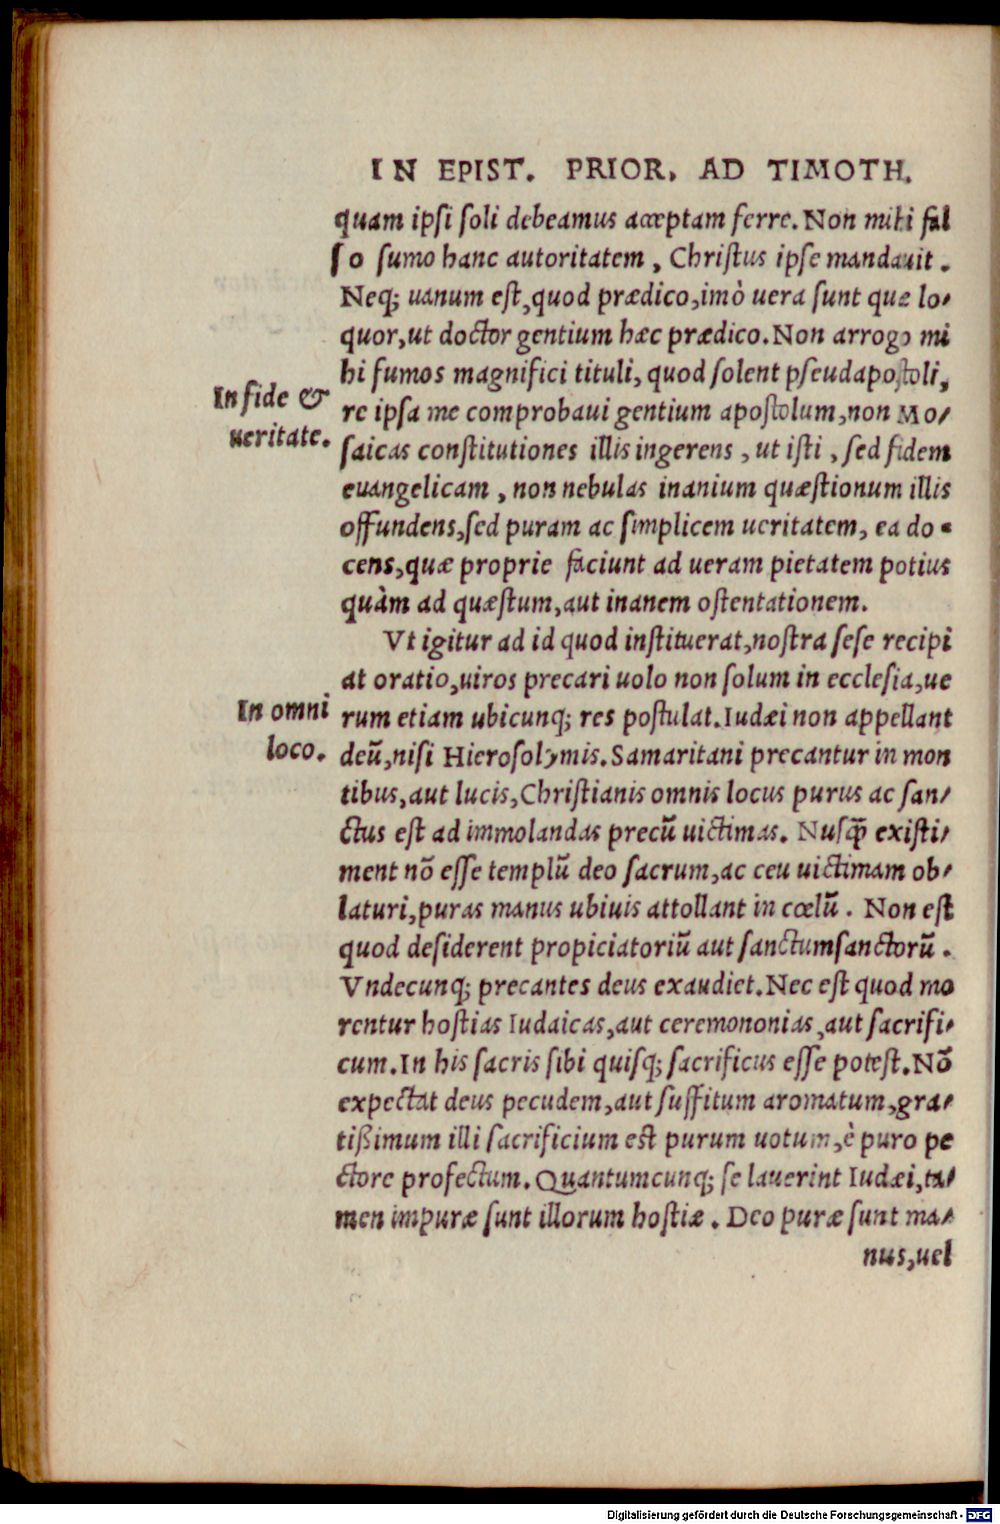 IN EPIST. PRIOR. AD TIMOTH.
quam ipſi ſoli debeamus acceptam ferre. Non mihi fal
ſo ſumo hanc autoritatem, Chriſtus ipſe mandauit.
Neq; uanum eſt, quod prædico, imò uera ſunt quæ lo-
quor, ut doctor gentium hæc prædico. Non arrogo mi
hi fumos magnifici tituli, quod ſolent pſeudapoſtoli,
In fide &
re ipſa me comprobaui gentium apoſtolum, non Mo-
ueritate.
ſaicas conſtitutiones illis ingerens, ut iſti, ſed fidem
euangelicam, non nebulas inanium quæſtionum illis
offundens, ſed puram ac ſimplicem ueritatem, ea do-
cens, quæ proprie faciunt ad ueram pietatem potius
quàm ad quæſtum, aut inanem oſtentationem.
Vt igitur ad id quod inſtituerat, noſtra ſeſe recipi
at oratio, uiros precari uolo non ſolum in eccleſia, ue
In omni
rum etiam ubicunq; res poſtulat. Iudæi non appellant
loco.
deū, niſi Hieroſolymis. Samaritani precantur in mon
tibus, aut lucis, Chriſtianis omnis locus purus ac ſan-
ctus eſt ad immolandas precū uictimas. Nuſq̄ exiſti-
ment nō eſſe templū deo ſacrum, ac ceu uictimam ob-
laturi, puras manus ubiuis attollant in cœlū. Non eſt
quod deſiderent propiciatoriū aut ſanctumſanctorū.
Vndecunq; precantes deus exaudiet. Nec eſt quod mo
rentur hoſtias Iudaicas, aut ceremononias, aut ſacrifi-
cum. In his ſacris ſibi quiſq; ſacrificus eſſe poteſt. Nō
expectat deus pecudem, aut ſuffitum aromatum, gra-
tißimum illi ſacrificium eſt purum uotum, è puro pe
ctore profectum. Quantumcunq; ſe lauerint Iudæi, ta-
men impuræ ſunt illorum hoſtiæ. Deo puræ ſunt ma-
nus, uel
Digitalisierung gefördert durch die Deutsche Forschungsgemeinschaft - DFG